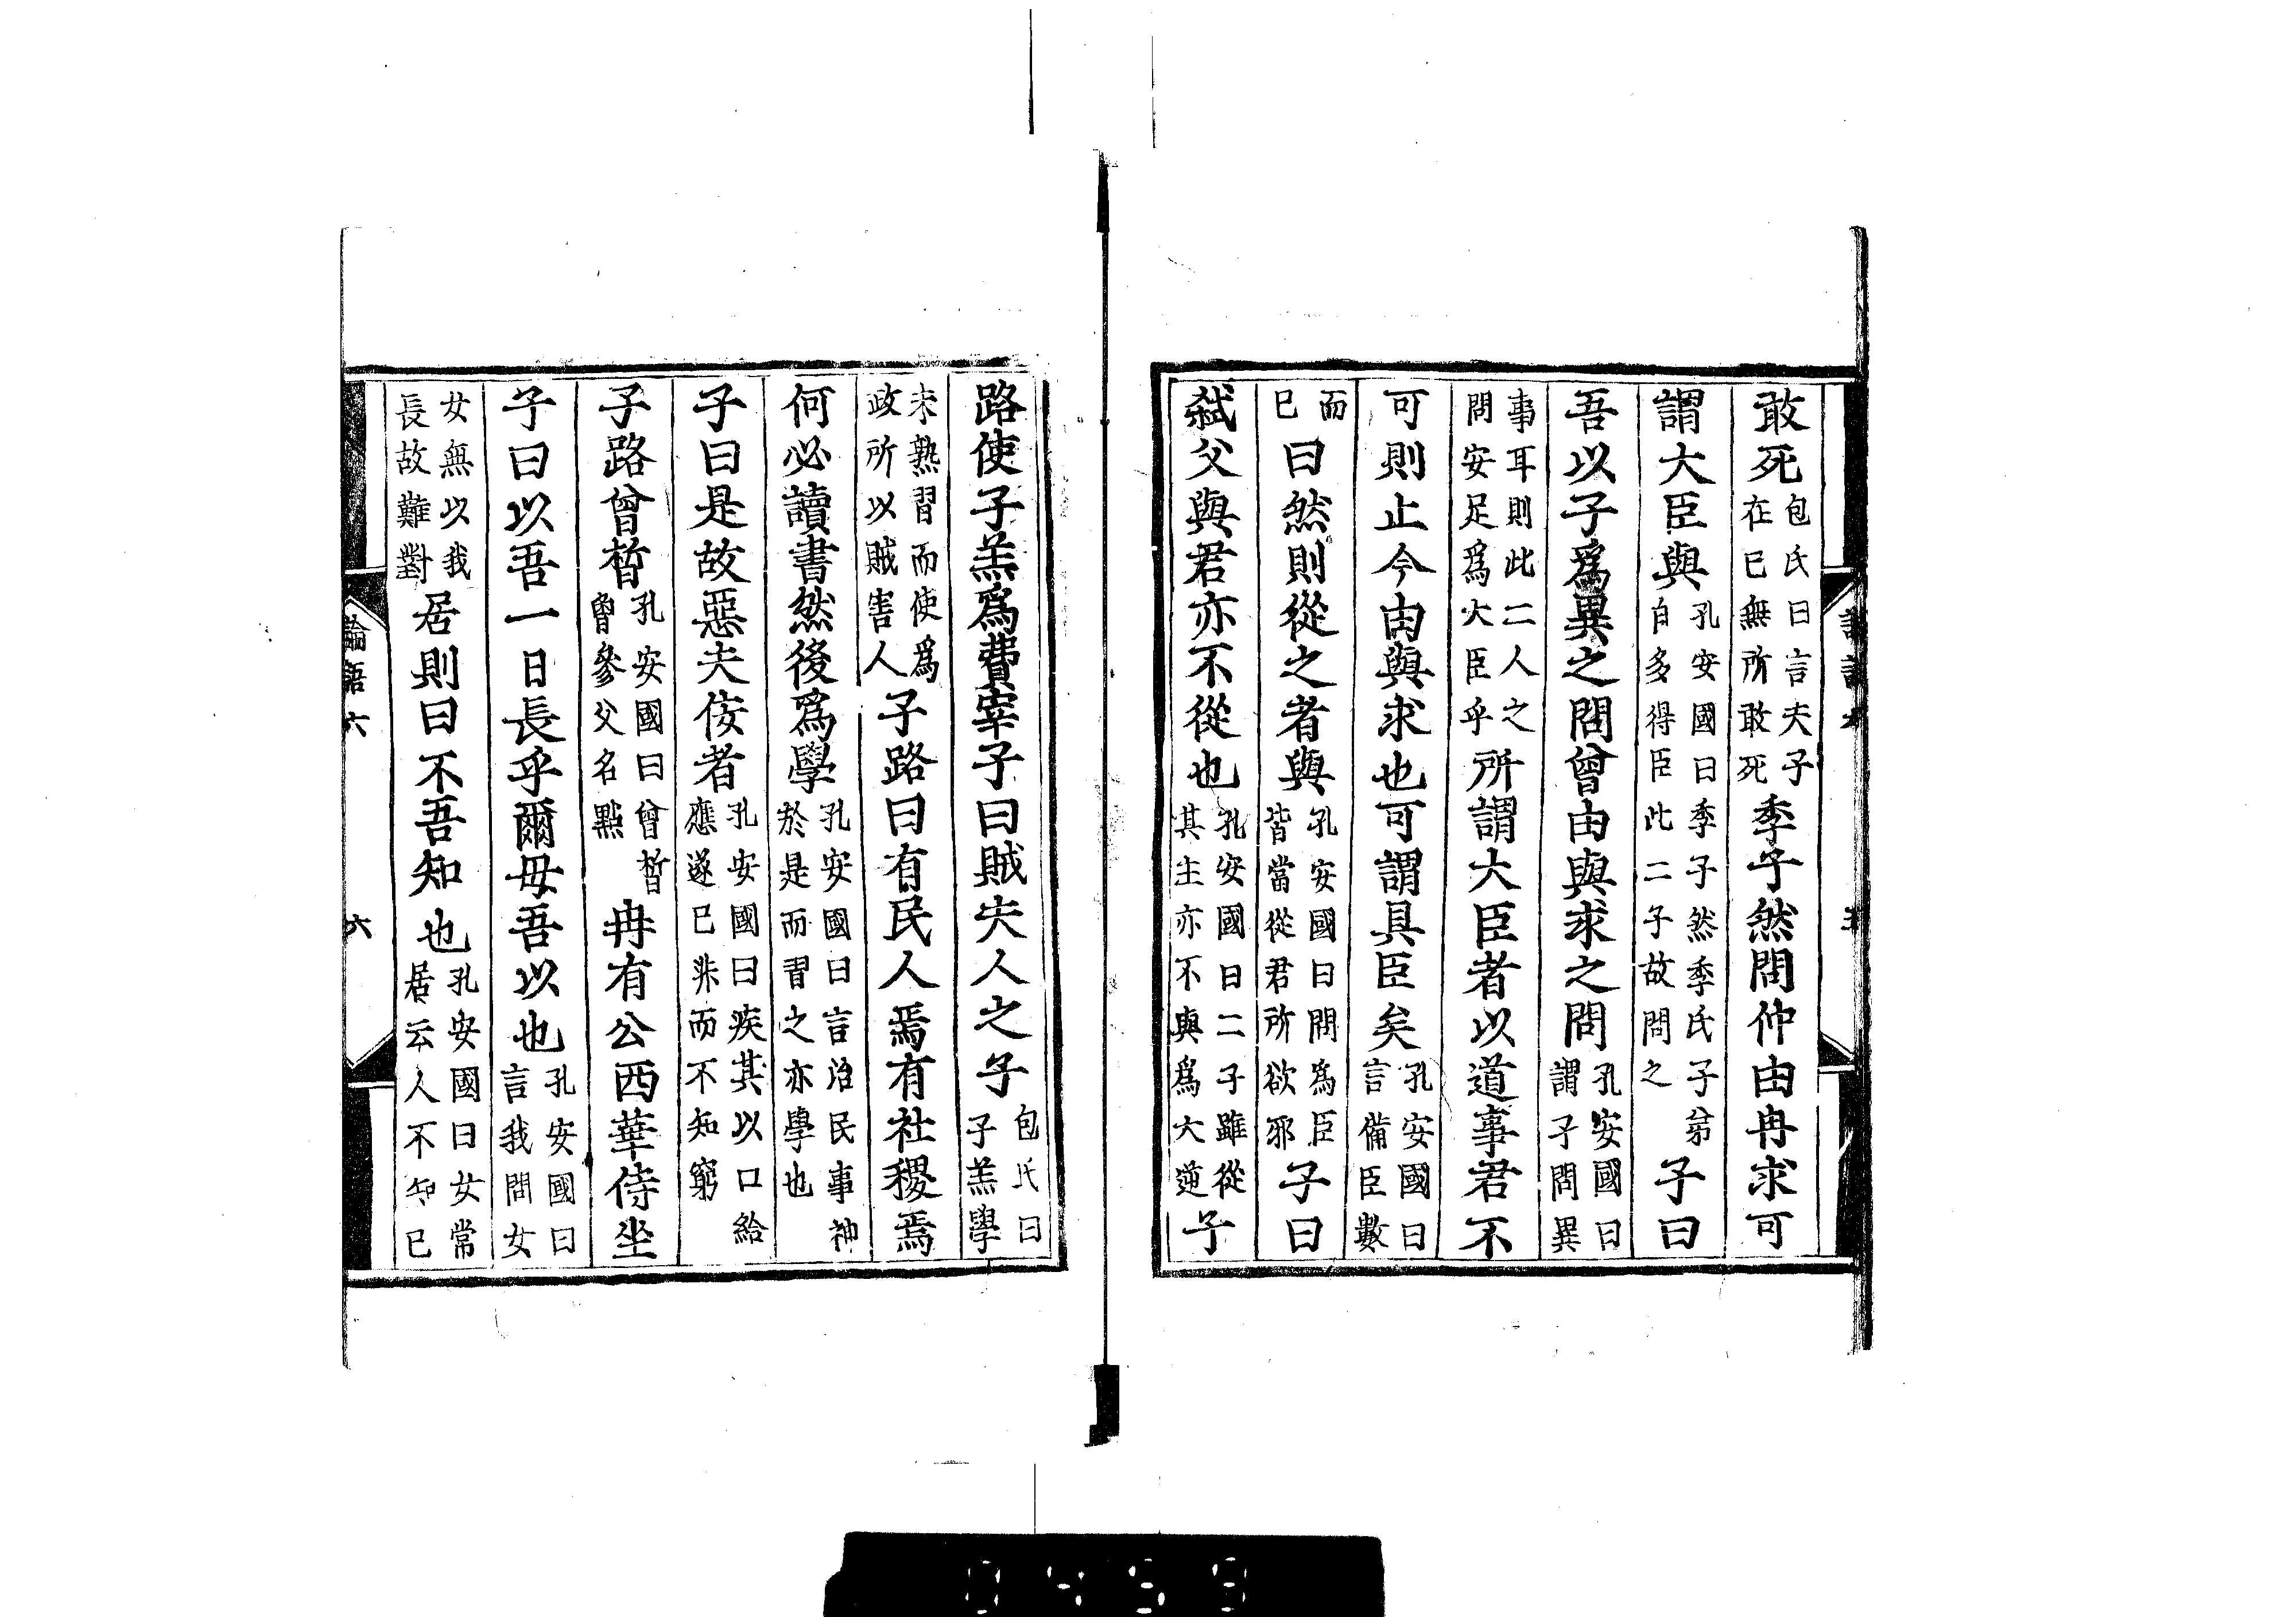 敢死包氏曰言夫子在已無所敢死季子然問仲由冉求可
謂大臣與孔安國曰季子然季氏子弟自多得臣此二子故問之子曰
吾以子爲異之問曾由與求之問孔安國曰謂子問異
事耳則此二人之問安足爲大臣乎所謂大臣者以道事君不
可則止今由與求也可謂具臣矣孔安國曰言備臣數
而已曰然則從之者與孔安國曰問爲臣皆當從君所欲邪子曰
弑父與君亦不從也孔安國曰二子雖從其主亦不與爲大逆子
路使子羔爲費宰子曰賊夫人之子包氏曰子羔學
未熟習而使爲政所以賊害人子路曰有民人焉有社稷焉
何必讀書然後爲學孔安國曰言治民事神於是而習之亦學也
子曰是故惡夫佞者孔安國曰疾其以口給應遂已非而不知窮
子路曾晳孔安國曰曾晳曾參父名點冉有公西華侍坐
子曰以吾一日長乎爾毋吾以也孔安國曰言我問女
女無以我長故難對居則曰不吾知也孔安國曰女常居云人不知已
論語六
六
0459